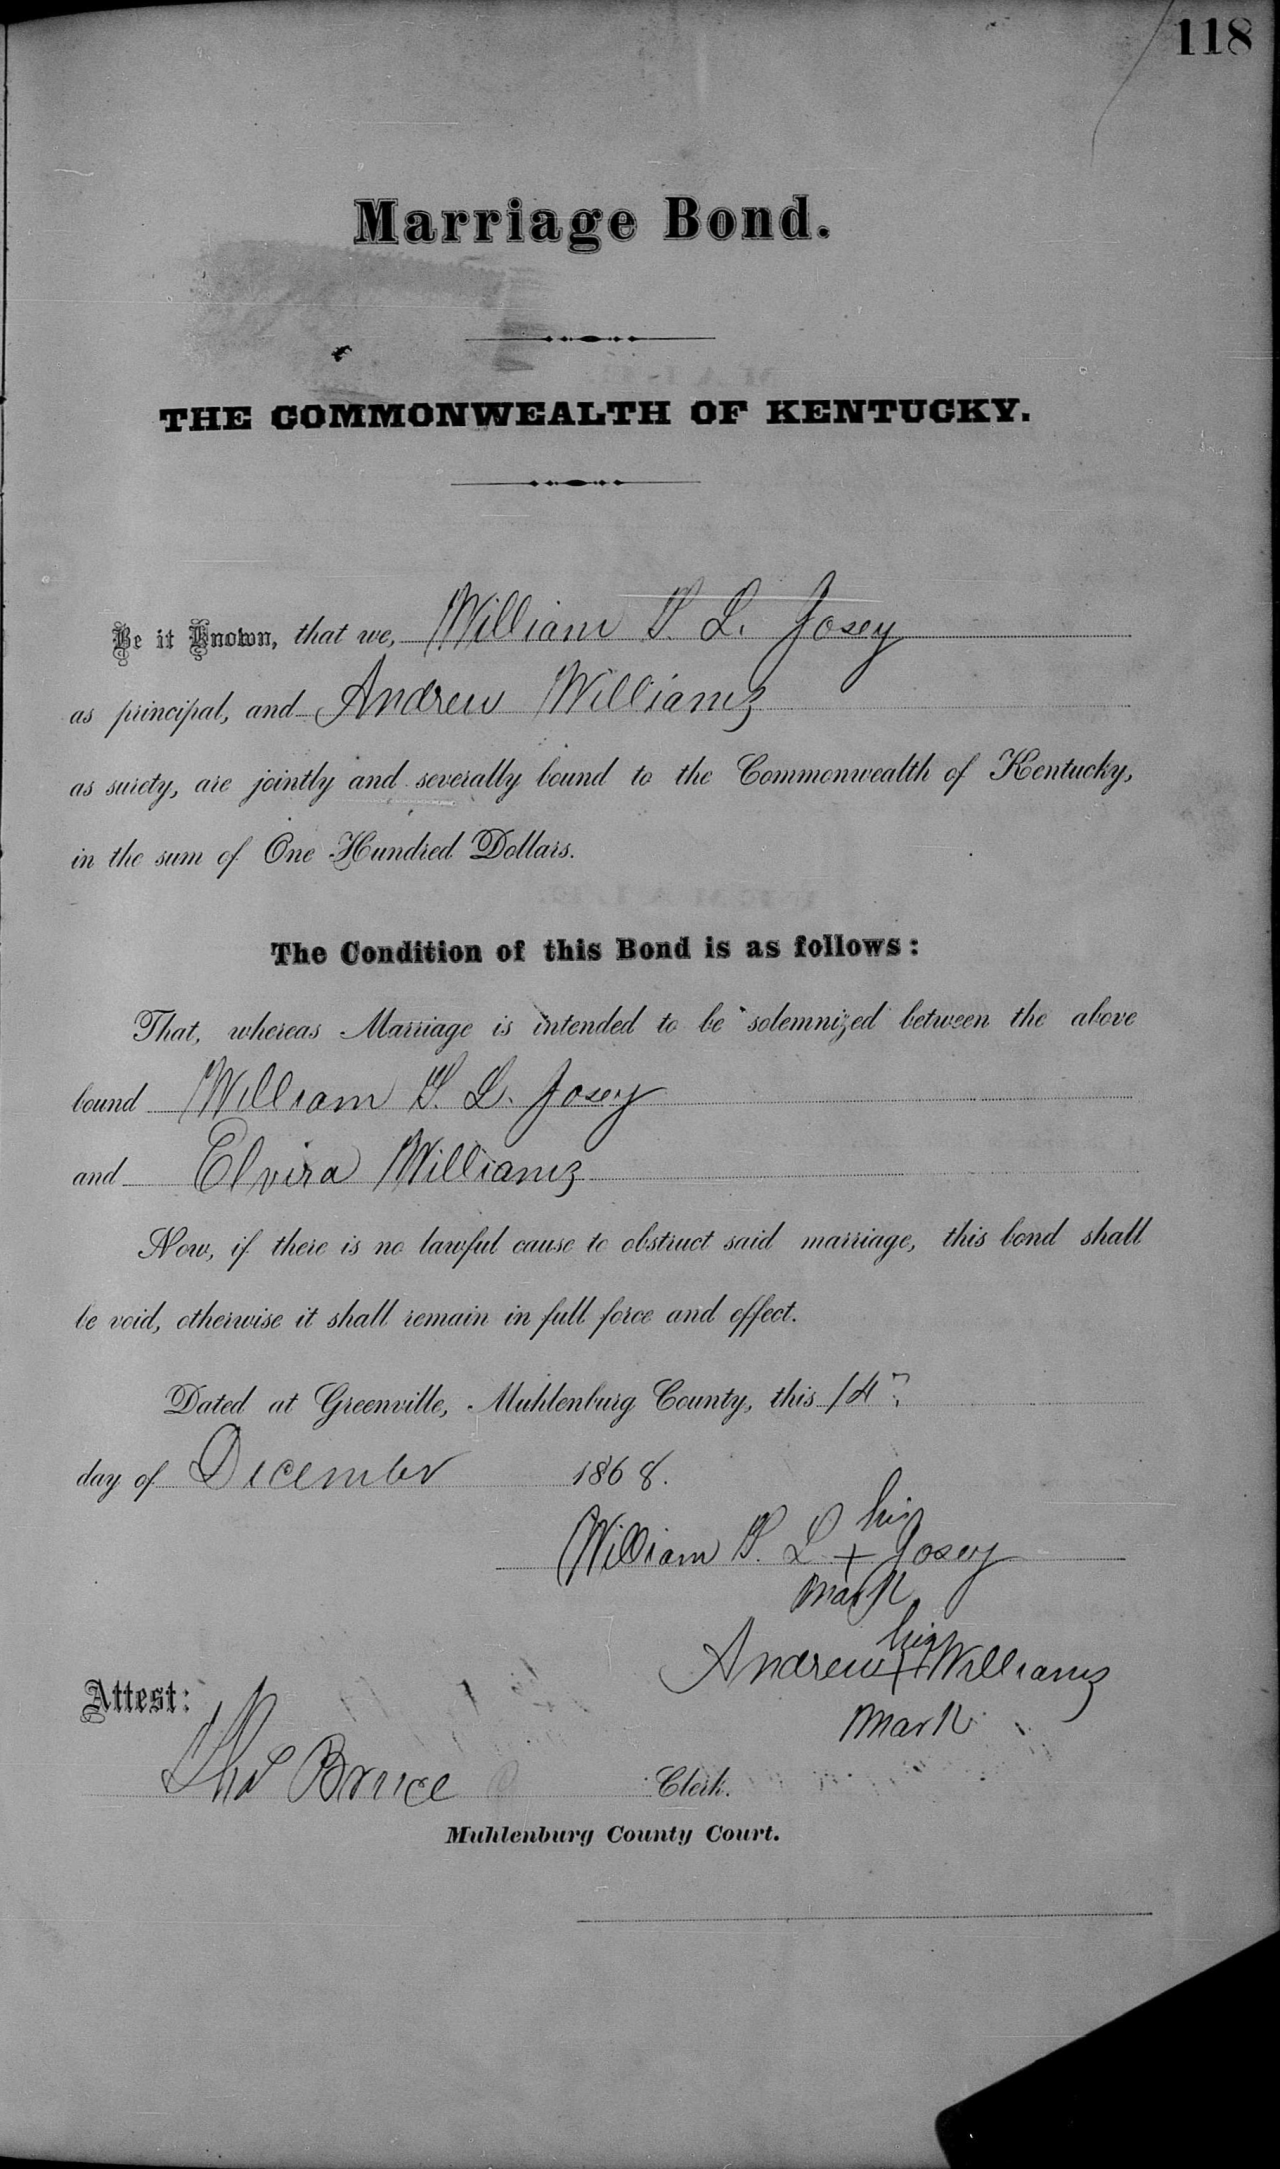 118
Marriage Bond.
THE COMMONWEALTH OF KENTUCKY.
Be it Known, that we, William S. L. Josey
as principal, and Andrew Williams
as surety, are jointly and severally bound to the Commonwealth of Kentucky,
in the sum of One Hundred Dollars.
The Condition of this Bond is as follows:
That, whereas Marriage is intended to be solemnized between the above
bound William S. L. Josey
and Elvira Williams
Now, if there is no lawful cause to obstruct said marriage, this bond shall
be void, otherwise it shall remain in full force and effect.
Dated at Greenville, Muhlenburg County, this 14
day of December 1868.
his
William S. L + Josey
mark
his
Andrew + Williams
mark
Attest:
Tho Bruce Clerk.
Muhlenburg County Court.